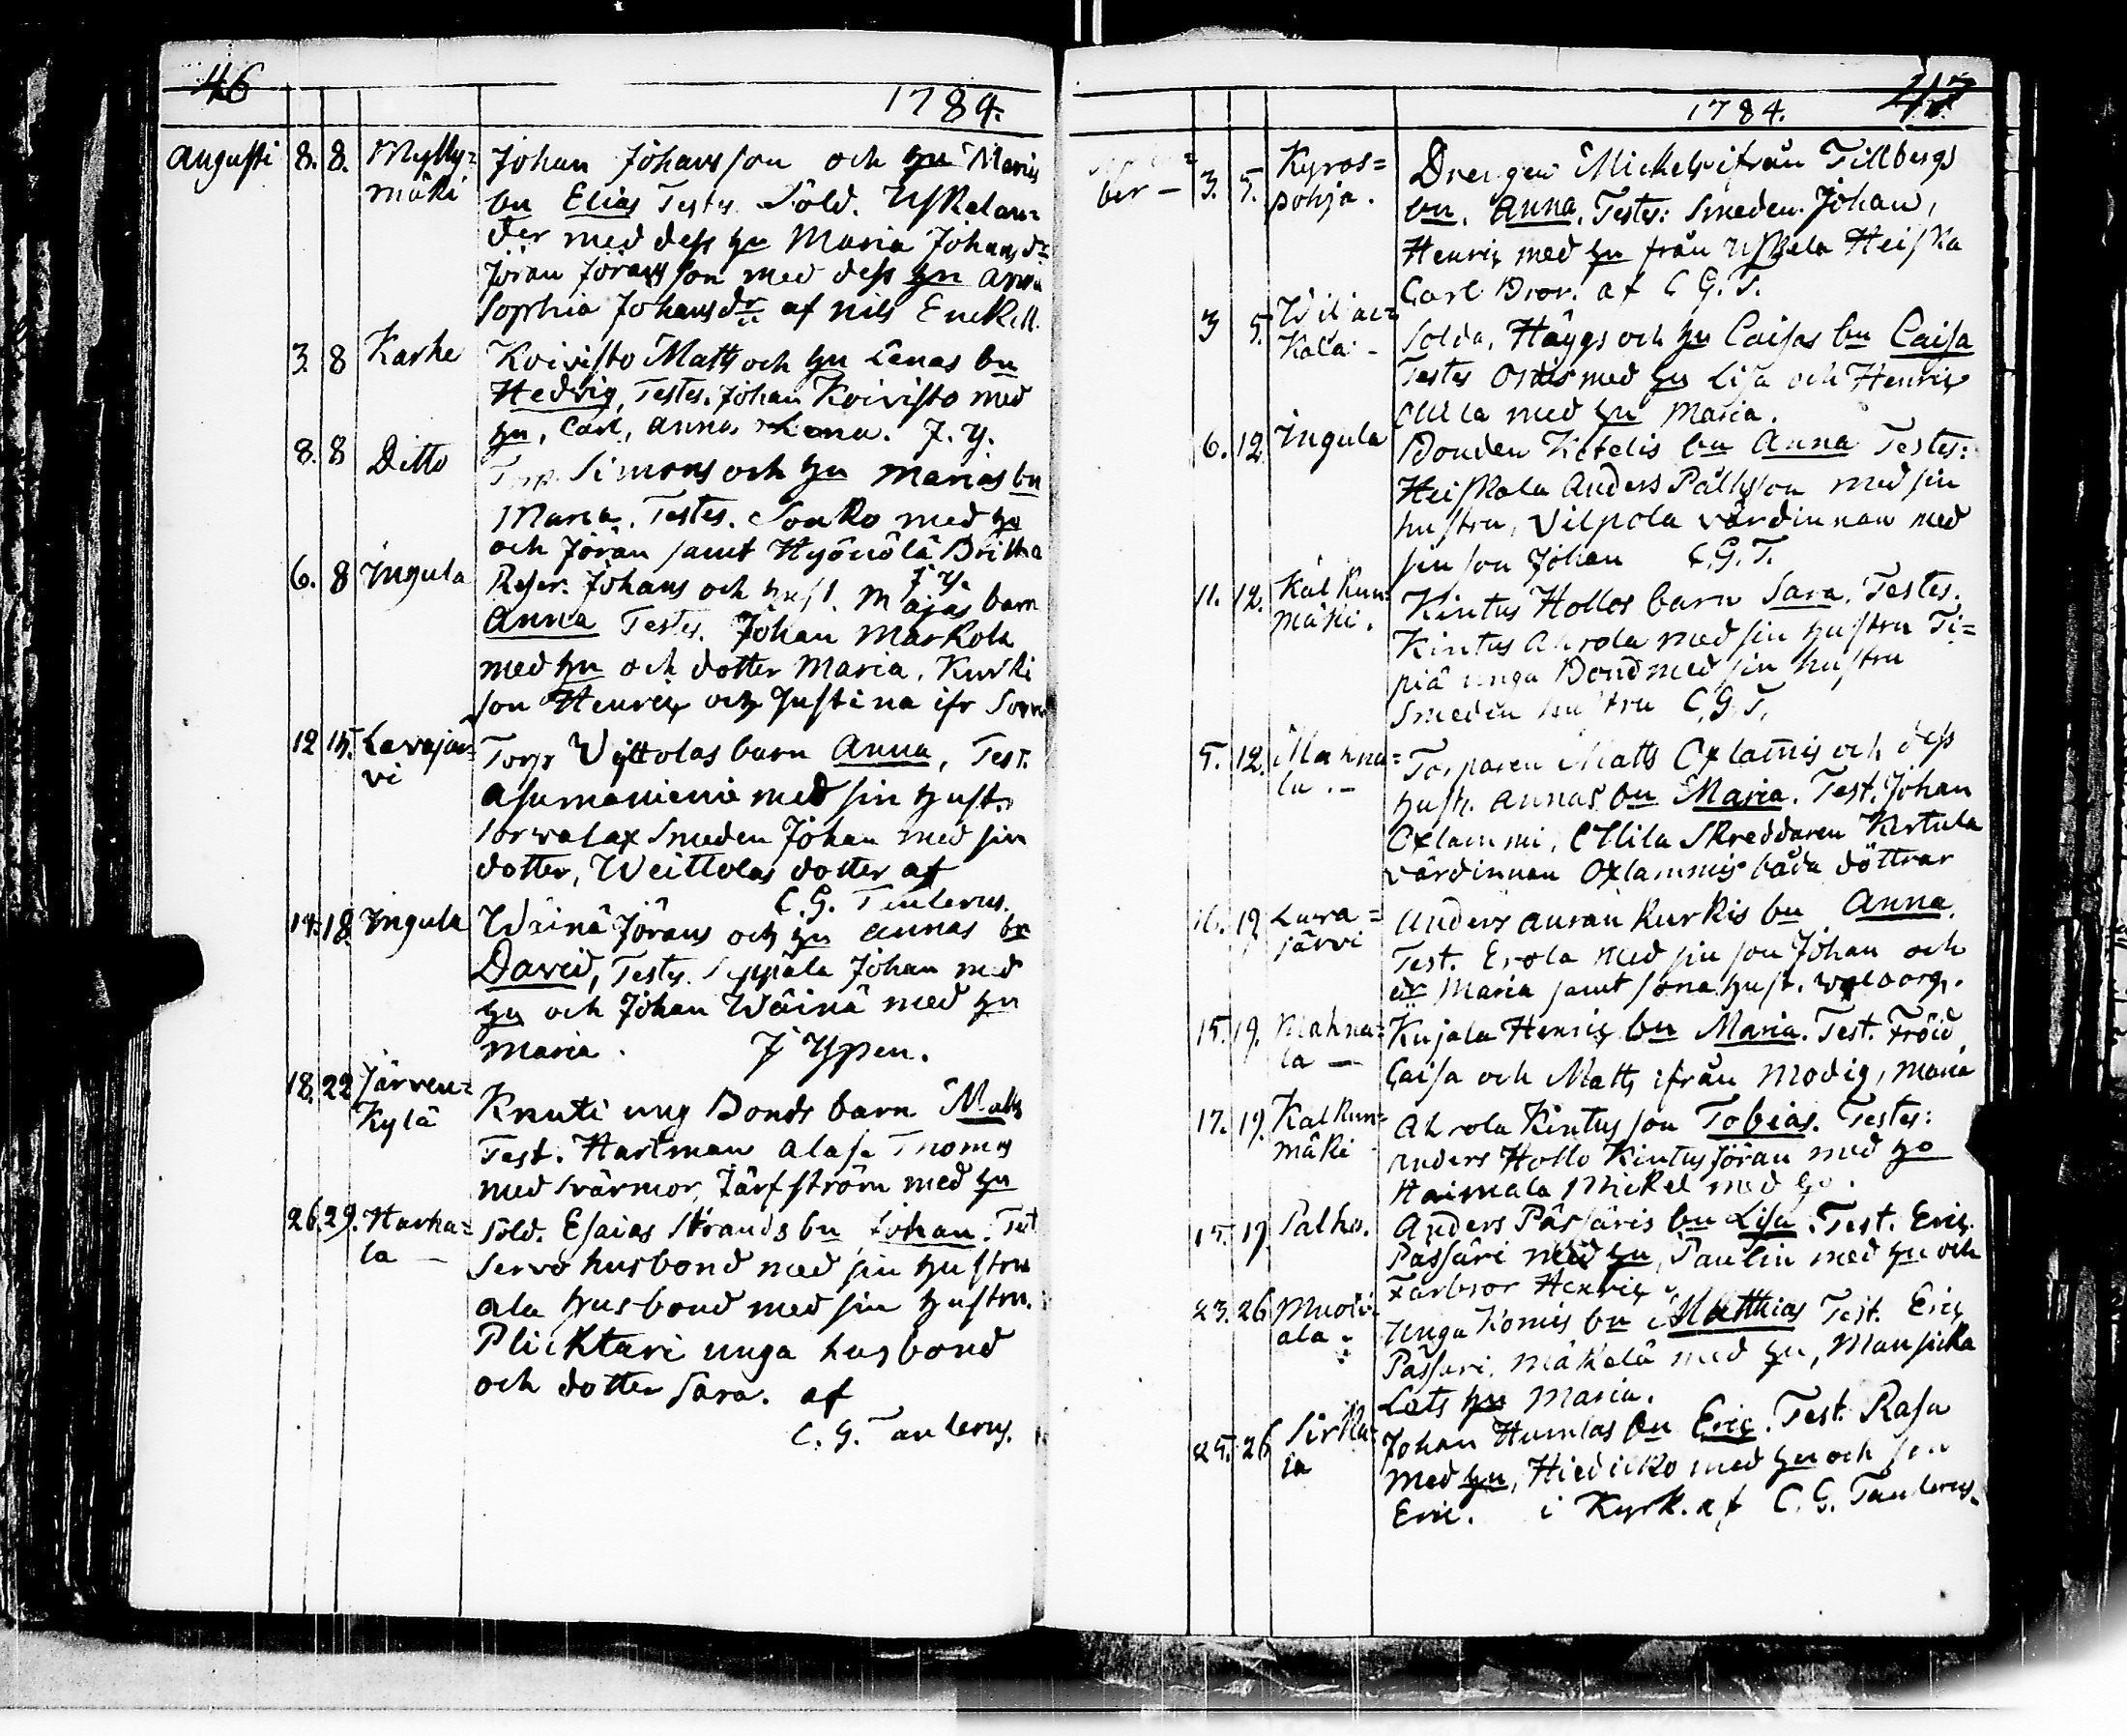 46
1784.
Augusti 8. 8. Mylly=
mäki
Johan Johansson och hu Marias
bn Elias Testes Sold. Uskelan=
der med dess hu Maria Johansdr
Jöran Jöransson med dess hu Anna
Sophia Johansdr af Nils Enckell.
3. 8 Karhe Koivisto Matts och hu Lenas bn
Hedvig, Testes. Johan Koivisto med
hu, Carl, Anna, Lena. J. Y.
8. 8 Ditto Torp. Simons och hu Marias bn
Maria. Testes. Souko med hu
och Jöran samt Hyönölä Britha
J Y.
6. 8 Yngula Johans och hust. Majas barn
Anna Testes. Johan Markola
med hu och dotter Maria, Kurki
son Henric och Justina ifr
12 15. Lavajär=
vi
Torp Wyttolas barn Anna, Test.
Asumaniemi med sin hust.
Sorvalax Smeden Johan med sin
dotter, Weittolas dotter af
C. G. Tanlerus.
14. 18. Yngula Wäinä Jörans och hu Annas bn
David, Testes. Seppälä Johan med
hu och Johan Wäinä med hu
Maria. J Ypen.
18. 22 Järven=
Kylä
Knuti ung Bonds barn Matts
Test. Hartman Alase Thomas
med svärmor, Järfström med hu
26. 29. Harha=
la —
Sold. Esaias Strands bn Johan. Test
Servo husbond med sin hustru
Ala husbond med sin hustru.
Plicktari unga husbond
och dotter Sara. af
C. G. Tanlerus.
47
1784.
ber — 3. 5. Kyros=
pohja.
Drengen Mickels ifrån Tillbergs
bn. Anna. Testes: Smeden Johan,
Henric med hu från Uskela Heiska
Carl Dror. af C G. T.
3 5.
Kala -
Solda. Häggs och hu Caisas bn Caisa
Testes med hu Lisa och Henric
Ollila med hu Maria.
6. 12 Yngula Bonden Ketelis bn Anna Testes:
Heiskala Anders Påhlsson med sin
hustru, Vilpola värdinnan med
sin son Johan C.G.T.
11. 12. Kalkun
mäki.
Kintus Hollos barn Sara. Testes.
Kintus Ahrola med sin hustru Ti=
piä unga Bond med sin hustru
Smeden hustru C.G.T.
5. 12. Mahna=
la. —
Torparen Matts Oxlamis och dess
hust. Annas bn Maria. Test. Johan
Oxlammi, Ollila Skreddaren Kertula
värdinnan Oxlammis båda döttrar
16. 19 Lava=
järvi
Anders Auran Kurkis bn Anna.
Test. Erola med sin son Johan och
dr Maria samt sona hust. Walborg.
15. 19. Mahna=
la —
Kujala Henric bn Maria. Test. Fröid,
Caisa och Matts ifrån Modig, Maria
17. 19. Kalkun=
mäki
Ahrola Kintus son Tobias. Testes:
Anders Hollo Kintus Jöran med hu
Haimala Mickel med hu.
15. 19. Palko. Anders Pässäris bn Lisa. Test. Eric
Passäri med hu, Paulin med hu och
Farbror Henric
23. 26 Muoti=
ala
Unga Komis bn Matthias Test. Eric
Pässäri, Mäkelä med hu, Mansicka
Lots hu Maria.
25. 26 Sirka=
la
Johan Humlas bn Eric. Test. Rasa
med hu, Hiedicko med hu och son
Eric. i Kyrk. af C. G. Tanlerus.